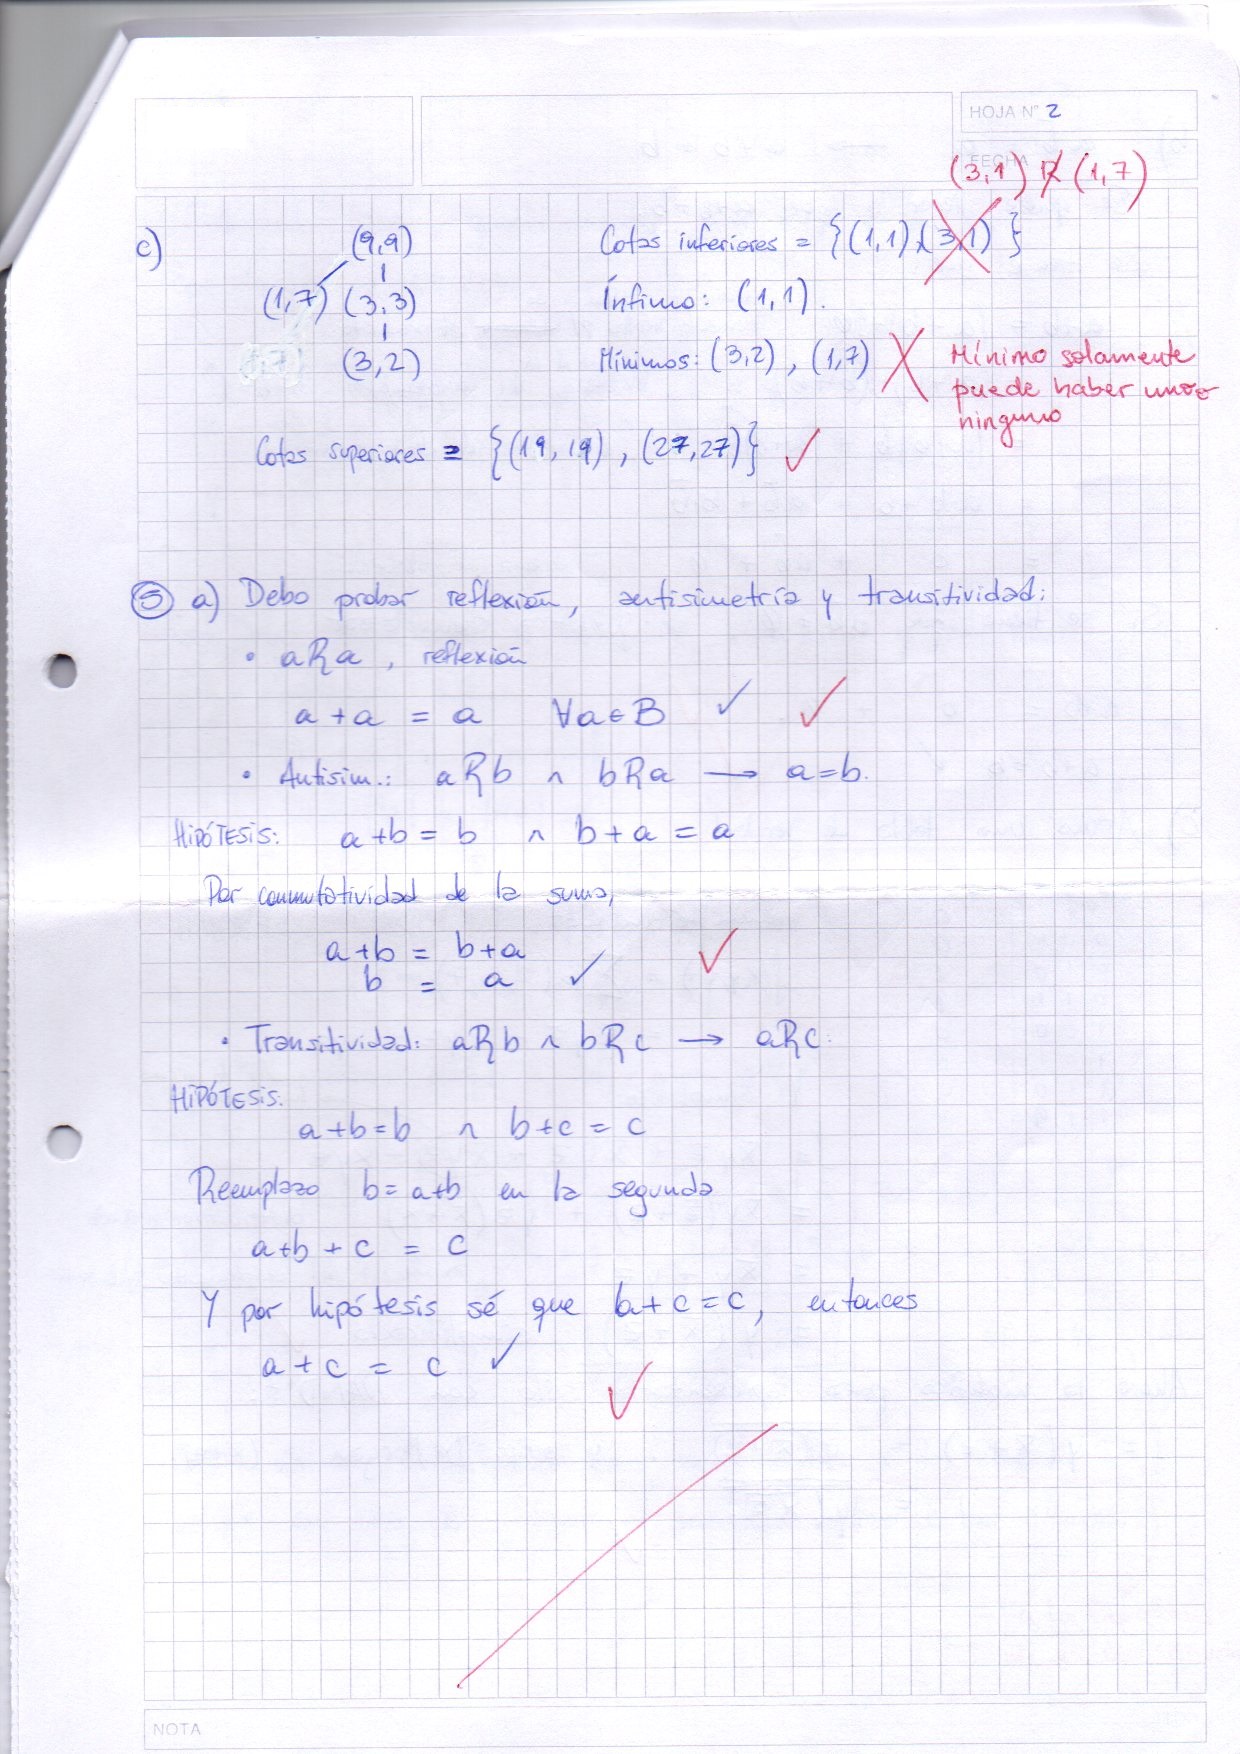 HOJA N° 2
FECHA
(3,1) R̸ (1,7)
c) (9,9) Cotas inferiores = {(1,1),(3,1)}
(1,7) (3,3) Ínfimo: (1,1).
(3,2) Mínimos: (3,2), (1,7) Mínimo solamente
puede haber uno o
ninguno
Cotas superiores = {(19,19), (27,27)} ✓
⑤ a) Debo probar reflexión, antisimetría y transitividad:
• aRa, reflexión
a + a = a ∀a∈B ✓ ✓
• Antisim.: aRb ∧ bRa → a=b.
HIPÓTESIS: a+b = b ∧ b+a = a
Por conmutatividad de la suma,
a+b = b+a
b = a ✓ ✓
• Transitividad: aRb ∧ bRc → aRc.
HIPÓTESIS.
a+b=b ∧ b+c = c
Reemplazo b=a+b en la segunda
a+b+c = c
Y por hipótesis sé que b+c=c, entonces
a+c = c ✓ ✓
NOTA